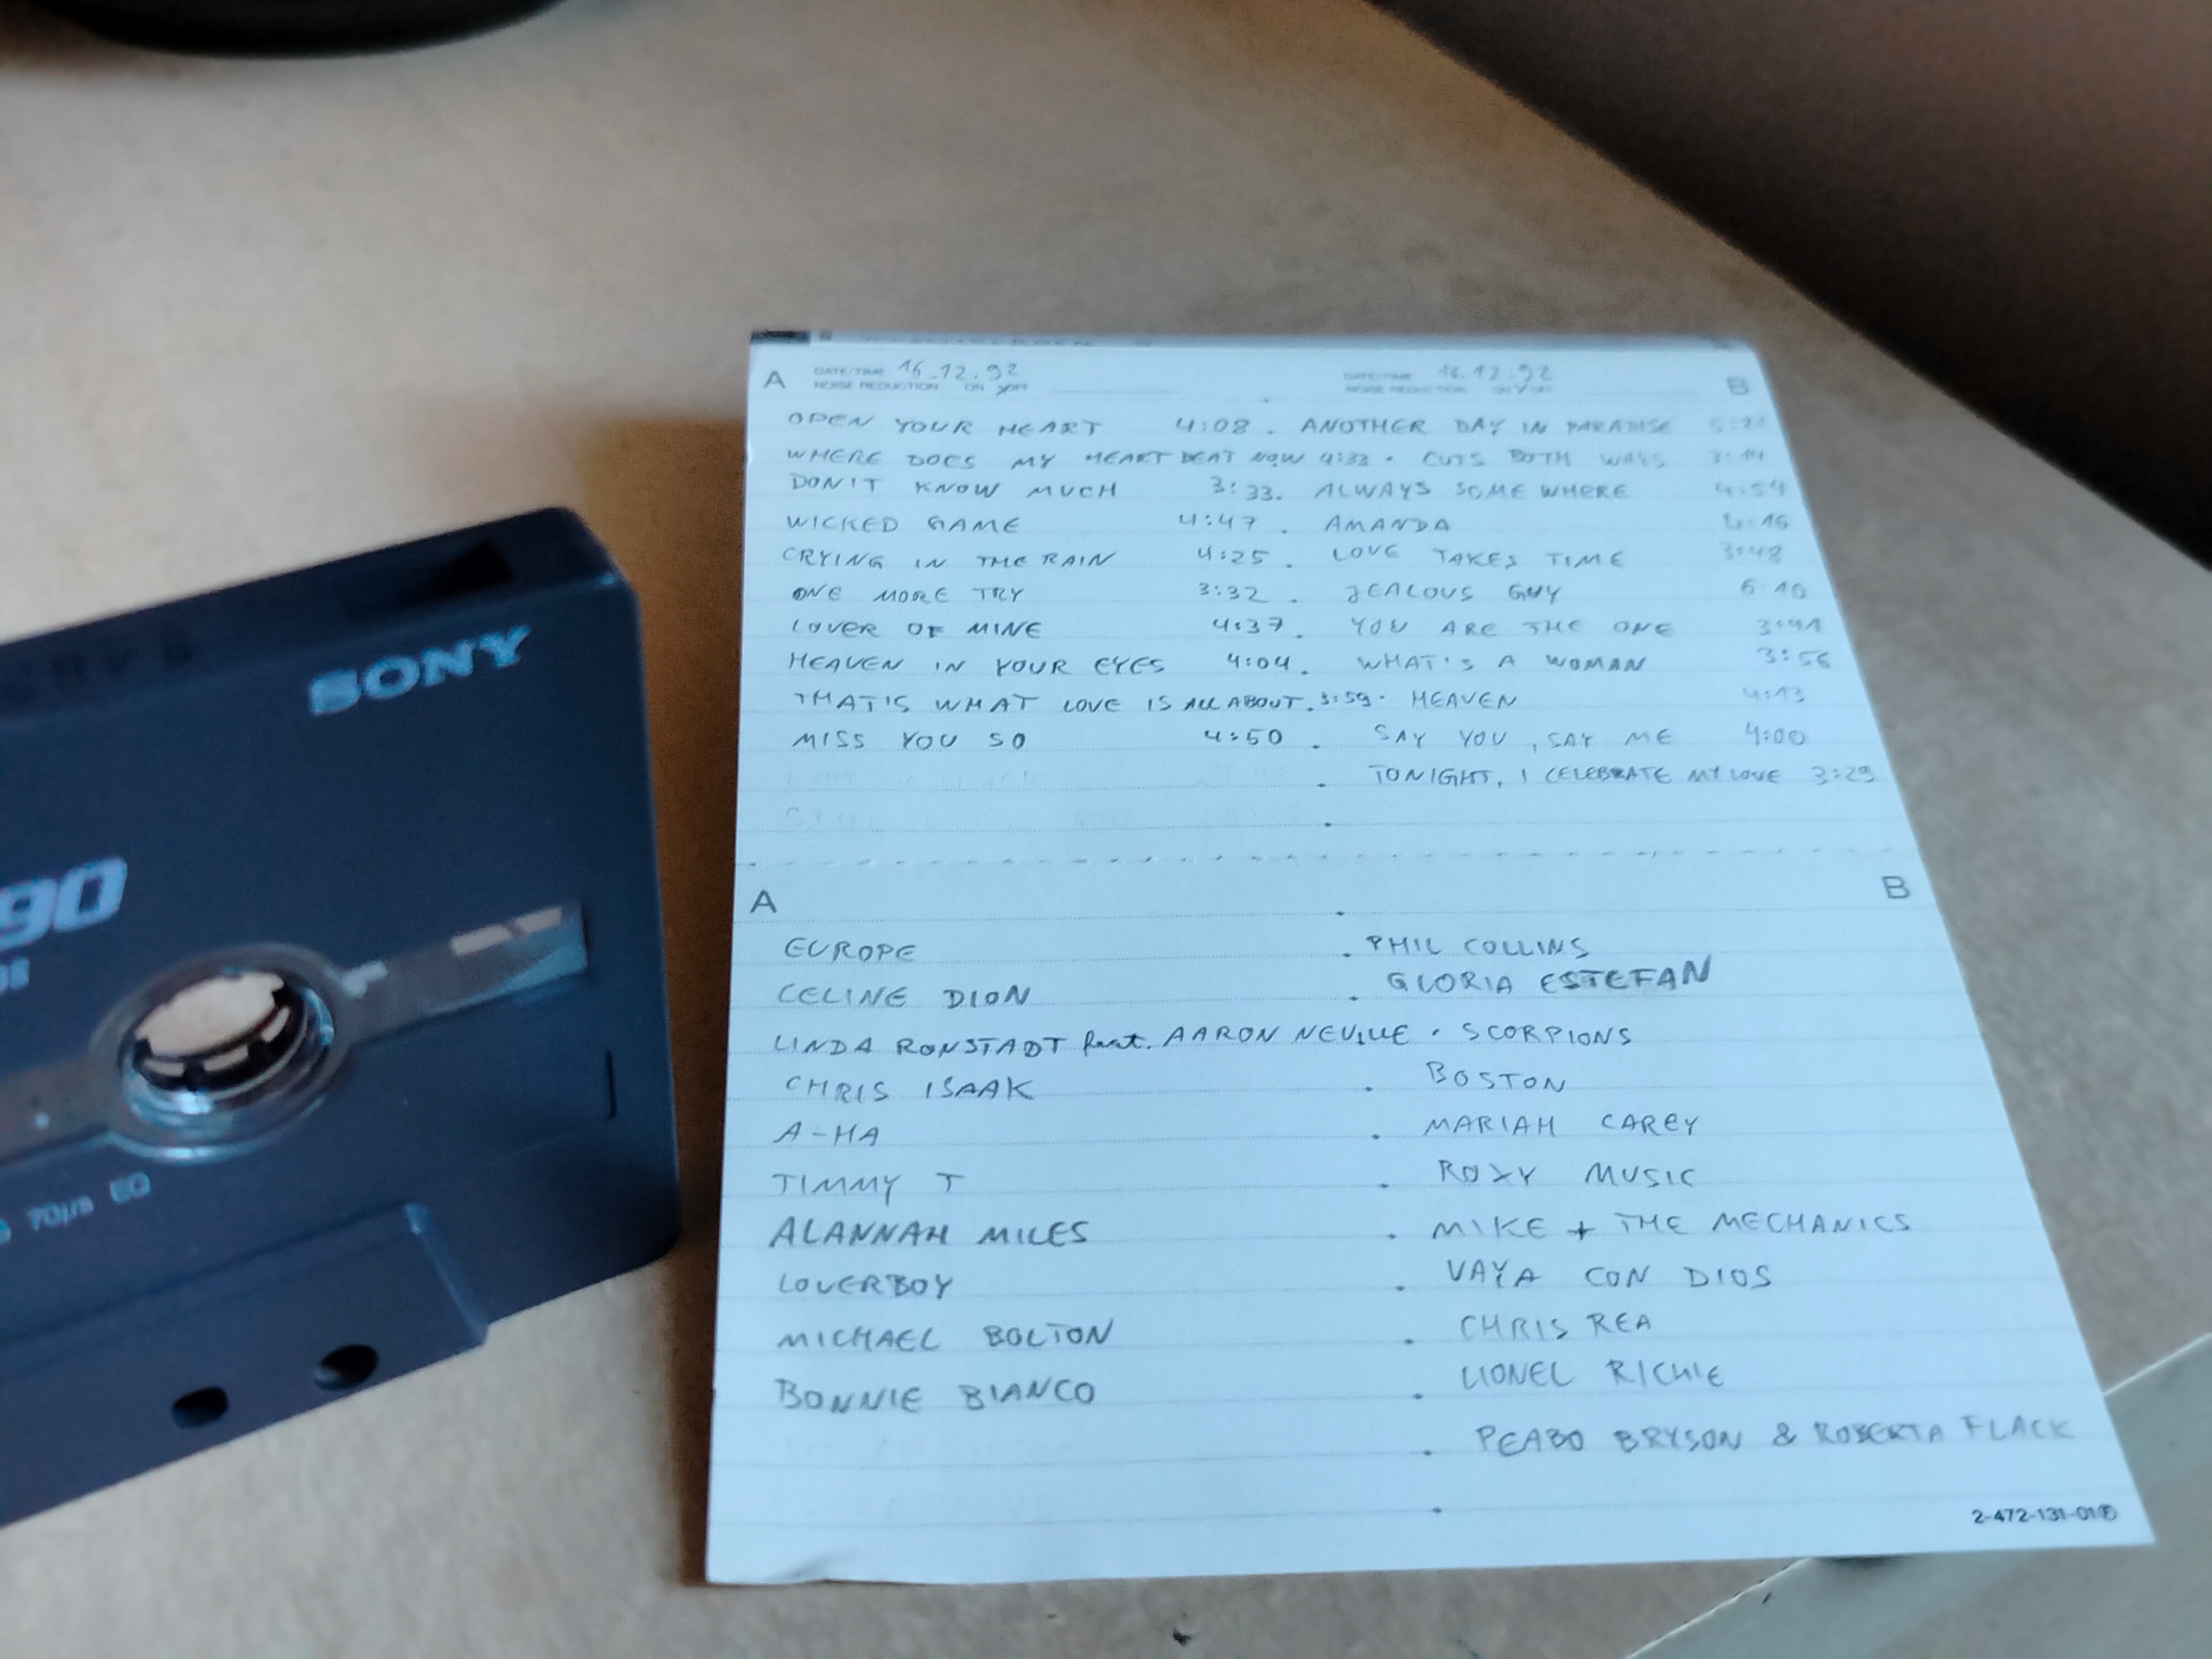 SONY
90
70µs EQ
A DATE/TIME 16.12.92 DATE/TIME 16.12.92 B
NOISE REDUCTION ON OFF NOISE REDUCTION ON OFF
OPEN YOUR HEART 4:08 . ANOTHER DAY IN PARADISE
WHERE DOES MY HEART BEAT NOW 4:33 . CUTS BOTH WAYS 3:14
DON'T KNOW MUCH 3:33. ALWAYS SOMEWHERE 4:54
WICKED GAME 4:47 . AMANDA 4:16
CRYING IN THE RAIN 4:25 . LOVE TAKES TIME 3:48
ONE MORE TRY 3:32 . JEALOUS GUY 6:10
LOVER OF MINE 4:37 . YOU ARE THE ONE 3:41
HEAVEN IN YOUR EYES 4:04 . WHAT'S A WOMAN 3:56
THAT'S WHAT LOVE IS ALL ABOUT . 3:59 . HEAVEN 4:13
MISS YOU SO 4:50 . SAY YOU, SAY ME 4:00
. TONIGHT, I CELEBRATE MY LOVE 3:29
A B
EUROPE . PHIL COLLINS
CELINE DION . GLORIA ESTEFAN
LINDA RONSTADT feat. AARON NEVILLE . SCORPIONS
CHRIS ISAAK . BOSTON
A-HA . MARIAH CAREY
TIMMY T . ROXY MUSIC
ALANNAH MILES . MIKE + THE MECHANICS
LOVERBOY . VAYA CON DIOS
MICHAEL BOLTON . CHRIS REA
BONNIE BIANCO . LIONEL RICHIE
. PEABO BRYSON & ROBERTA FLACK
2-472-131-01